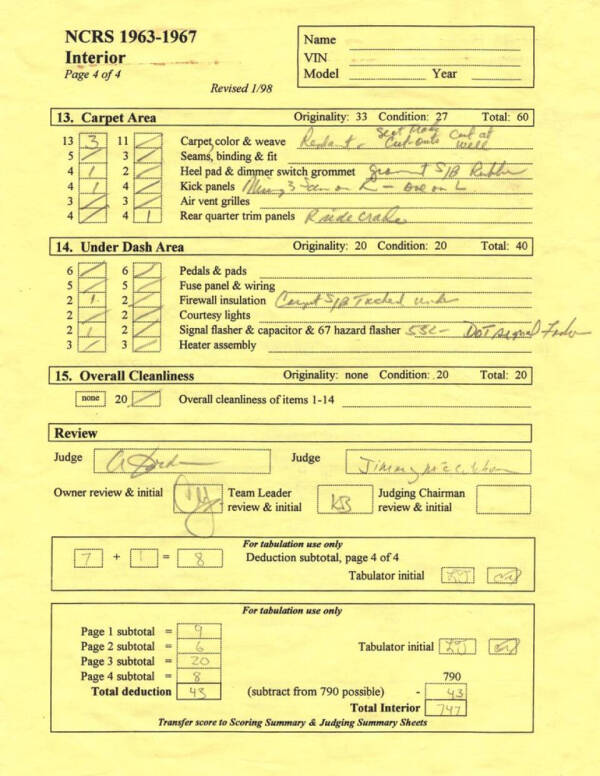 NCRS 1963-1967
Interior
Page 4 of 4
Revised 1/98
Name
VIN
Model Year
13. Carpet Area Originality: 33 Condition: 27 Total: 60
13 3 11 Carpet color & weave Cut-outs Cut at well
5 3 Seams, binding & fit
4 1 2 Heel pad & dimmer switch grommet grommet S/B Rubber
4 1 4 Kick panels Missing 3 on R - one on L
3 3 Air vent grilles
4 4 1 Rear quarter trim panels R side cracked
14. Under Dash Area Originality: 20 Condition: 20 Total: 40
6 6 Pedals & pads
5 5 Fuse panel & wiring
2 1 2 Firewall insulation Carpet S/B Tucked under
2 2 Courtesy lights
2 1 2 Signal flasher & capacitor & 67 hazard flasher 532 - DOT signal
3 3 Heater assembly
15. Overall Cleanliness Originality: none Condition: 20 Total: 20
none 20 Overall cleanliness of items 1-14
Review
Judge Judge Jimmy
Owner review & initial Team Leader review & initial KB Judging Chairman review & initial
For tabulation use only
7 + 1 = 8 Deduction subtotal, page 4 of 4
Tabulator initial
For tabulation use only
Page 1 subtotal = 9
Page 2 subtotal = 6 Tabulator initial
Page 3 subtotal = 20
Page 4 subtotal = 8 790
Total deduction = 43 (subtract from 790 possible) - 43
Total Interior 747
Transfer score to Scoring Summary & Judging Summary Sheets